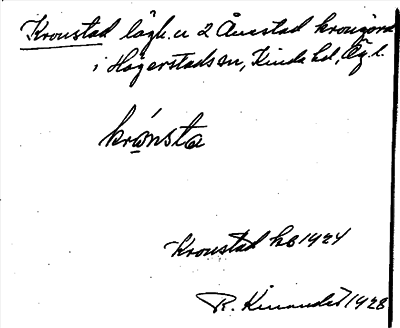 Kronstad lägh. u 2 Ånestad krongård
i Hägerstads sn, Kinda hd, Ög. l.
krånsta
Kronstad hs 1924
R. Kinander 1928